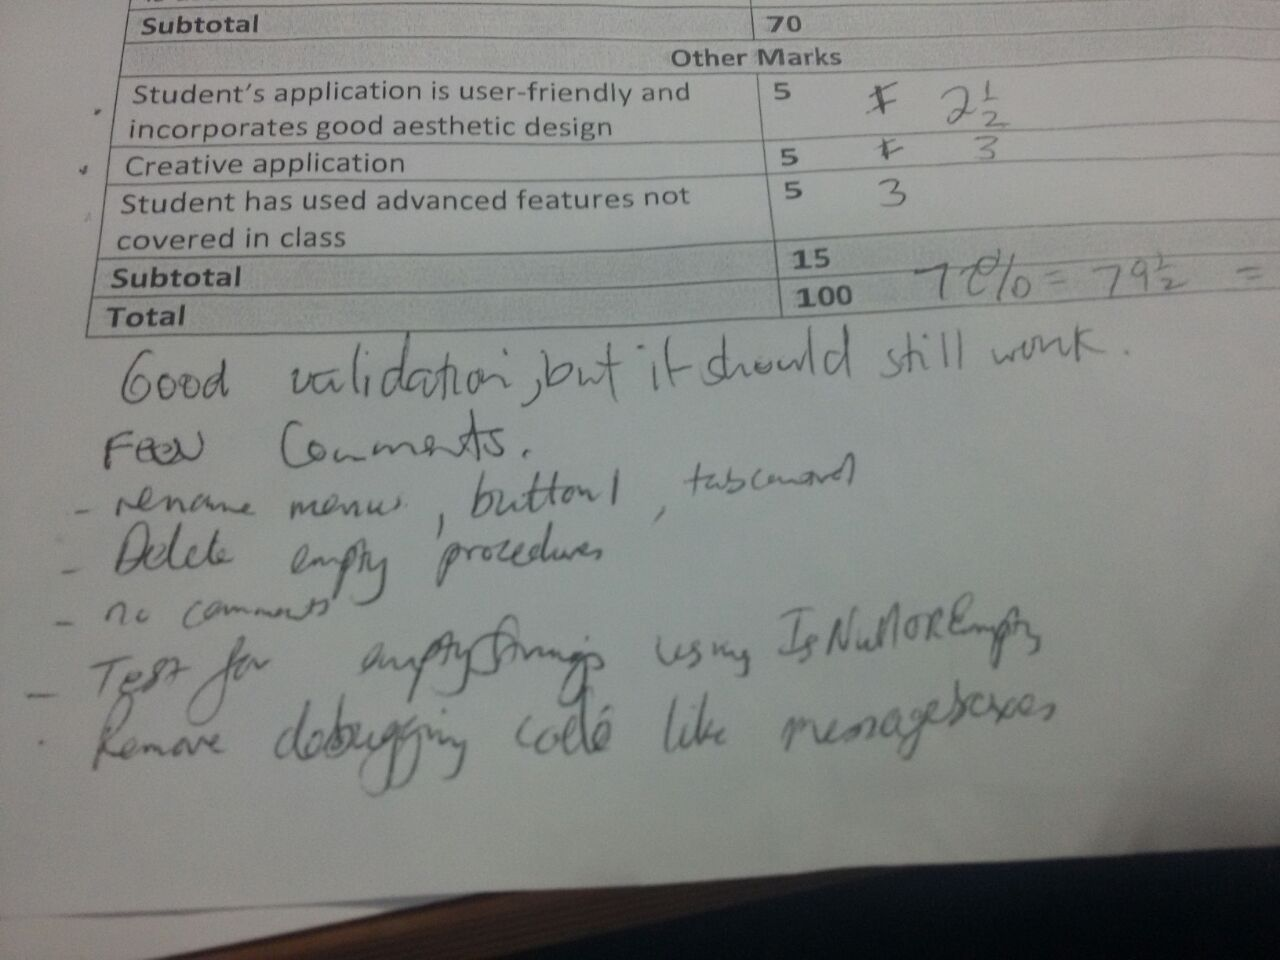 Subtotal 70
Other Marks
Student's application is user-friendly and 5 2½
incorporates good aesthetic design
Creative application 5 3
Student has used advanced features not 5 3
covered in class
Subtotal 15
Total 100 = 79½ =
Good validation, but it should still work.
Few Comments.
- rename menus, button1, tabcontrol
- Delete empty procedures
- no comments
- Test for empty strings using IsNullOREmpty
Remove debugging code like messageboxes